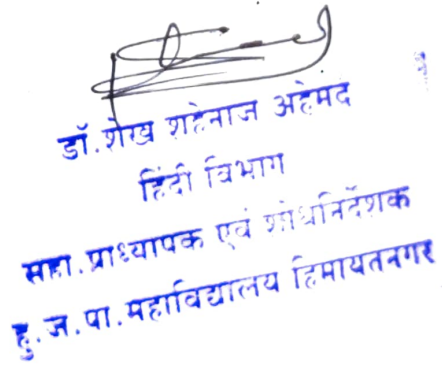 डॉ.शेख शहेनाज अहेमद
हिंदी विभाग
सहा. प्राध्यापक एवं शोधनिर्देशक
हु. ज. पा. महाविद्यालय हिमायतनगर